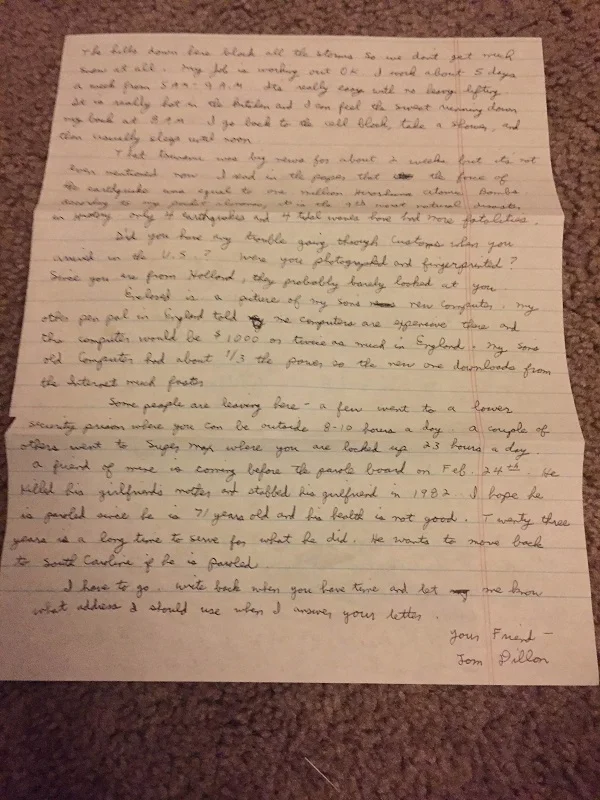 The hills down here block all the storms so we don't get much
snow at all. My job is working out OK. I work about 5 days
a week from 5 AM - 9 A.M. Its really easy with no heavy lifting.
It is really hot in the kitchen and I can feel the sweat running down
my back at 8 A.M. I go back to the cell block, take a shower, and
then usually sleep until noon.
That tsunami was big news for about 2 weeks but it's not
even mentioned now. I read in the papers that the force of
the earthquake was equal to one million Hiroshima atomic Bombs
According to my pocket almanac, it is the 9th worst natural disaster
in history. Only 4 earthquakes and 4 tidal waves have had more fatalities.
Did you have any trouble going through Customs when you
arrived in the U.S.? Were you photographed and fingerprinted?
Since you are from Holland, they probably barely looked at you.
Enclosed is a picture of my sons new Computer. My
other pen pal in England told me computers are expensive there and
the computer would be $1000 or twice as much in England. My sons
old Computer had about 1/3 the power so the new one downloads from
the Internet much faster
Some people are leaving here - a few went to a lower
security prison where you can be outside 8-10 hours a day. A couple of
others went to Super Max where you are locked up 23 hours a day.
A friend of mine is coming before the parole board on Feb. 24th. He
killed his girlfriends mother and stabbed his girlfriend in 1982. I hope he
is paroled since he is 71 years old and his health is not good. Twenty three
years is a long time to serve for what he did. He wants to move back
to South Carolina if he is paroled.
I have to go. Write back when you have time and let me know
what address I should use when I answer your letter.
Your Friend -
Tom Dillon